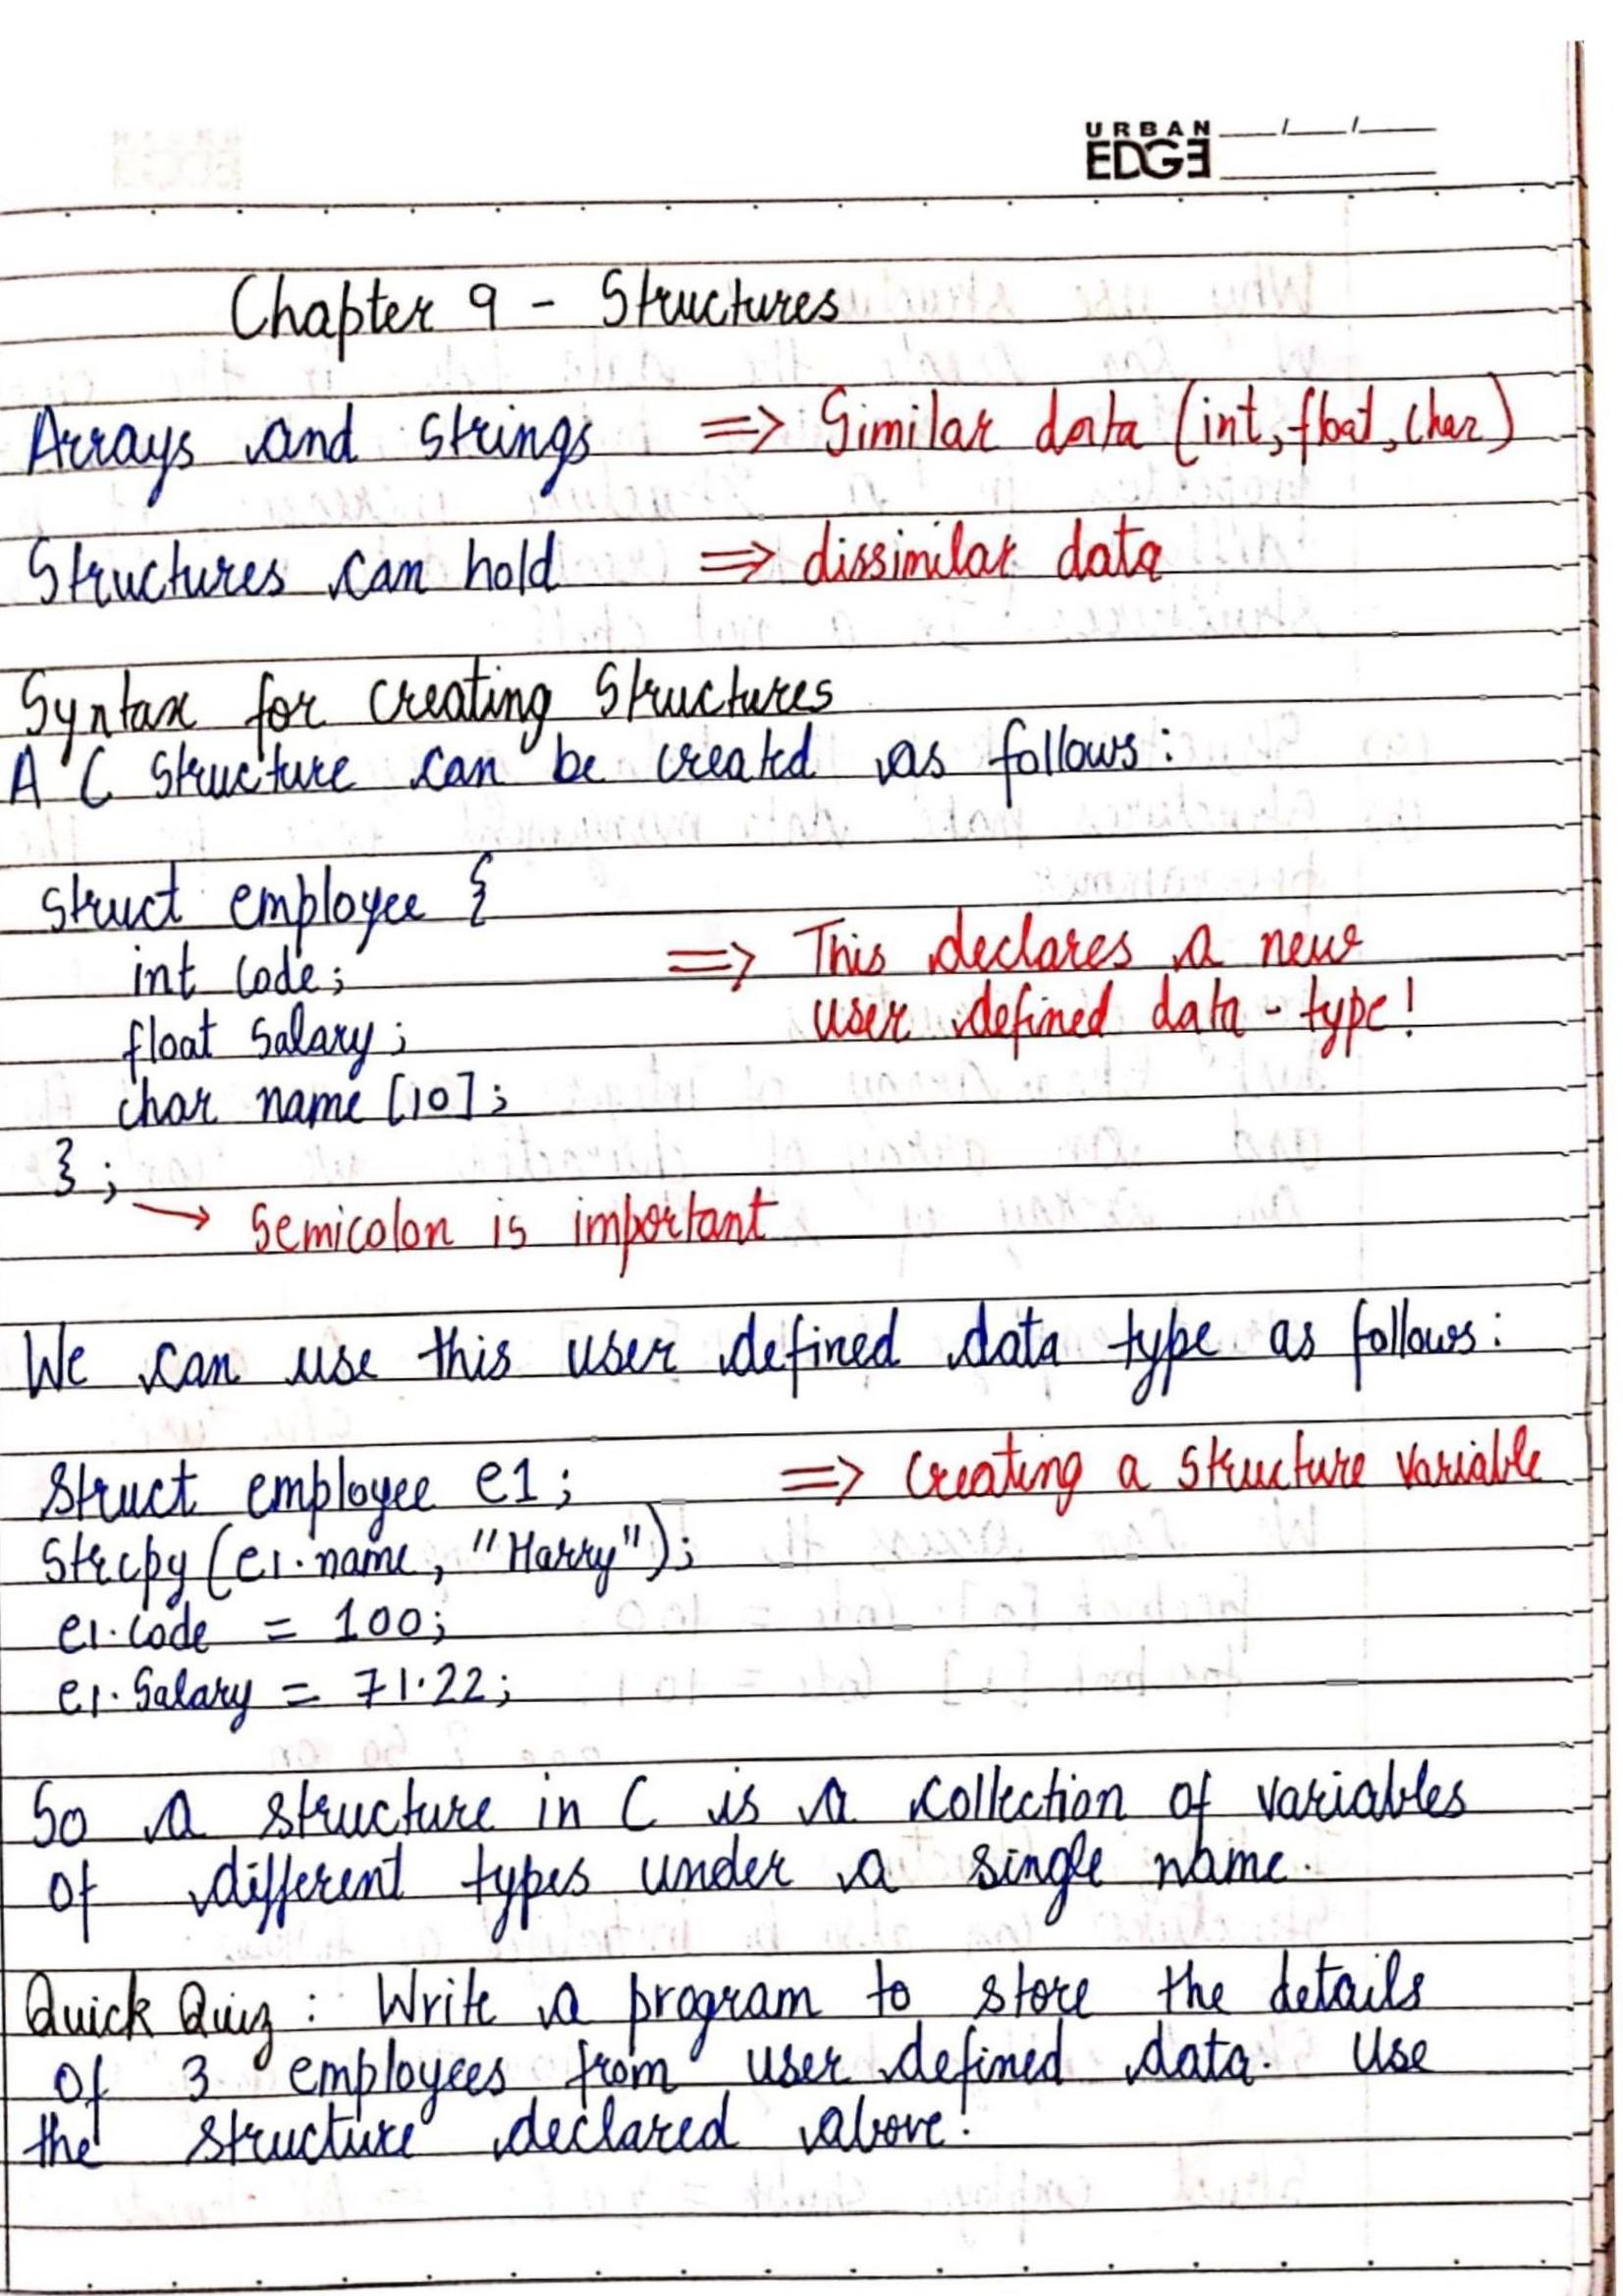 URBAN
EDGE
Chapter 9 - Structures
Arrays and strings => Similar data (int, float, char)
Structures can hold => dissimilar data
Syntax for creating Structures
A C Structure can be created as follows:
struct employee {
int code; => This declares a new
float salary; user defined data-type!
char name [10];
};
→ Semicolon is important
We can use this user defined data type as follows:
Struct employee e1; => Creating a structure variable
Strcpy(e1.name, "Harry");
e1.code = 100;
e1.Salary = 71.22;
So a structure in C is a collection of variables
of different types under a single name.
Quick Quiz: Write a program to store the details
of 3 employees from user defined data. Use
the structure declared above.